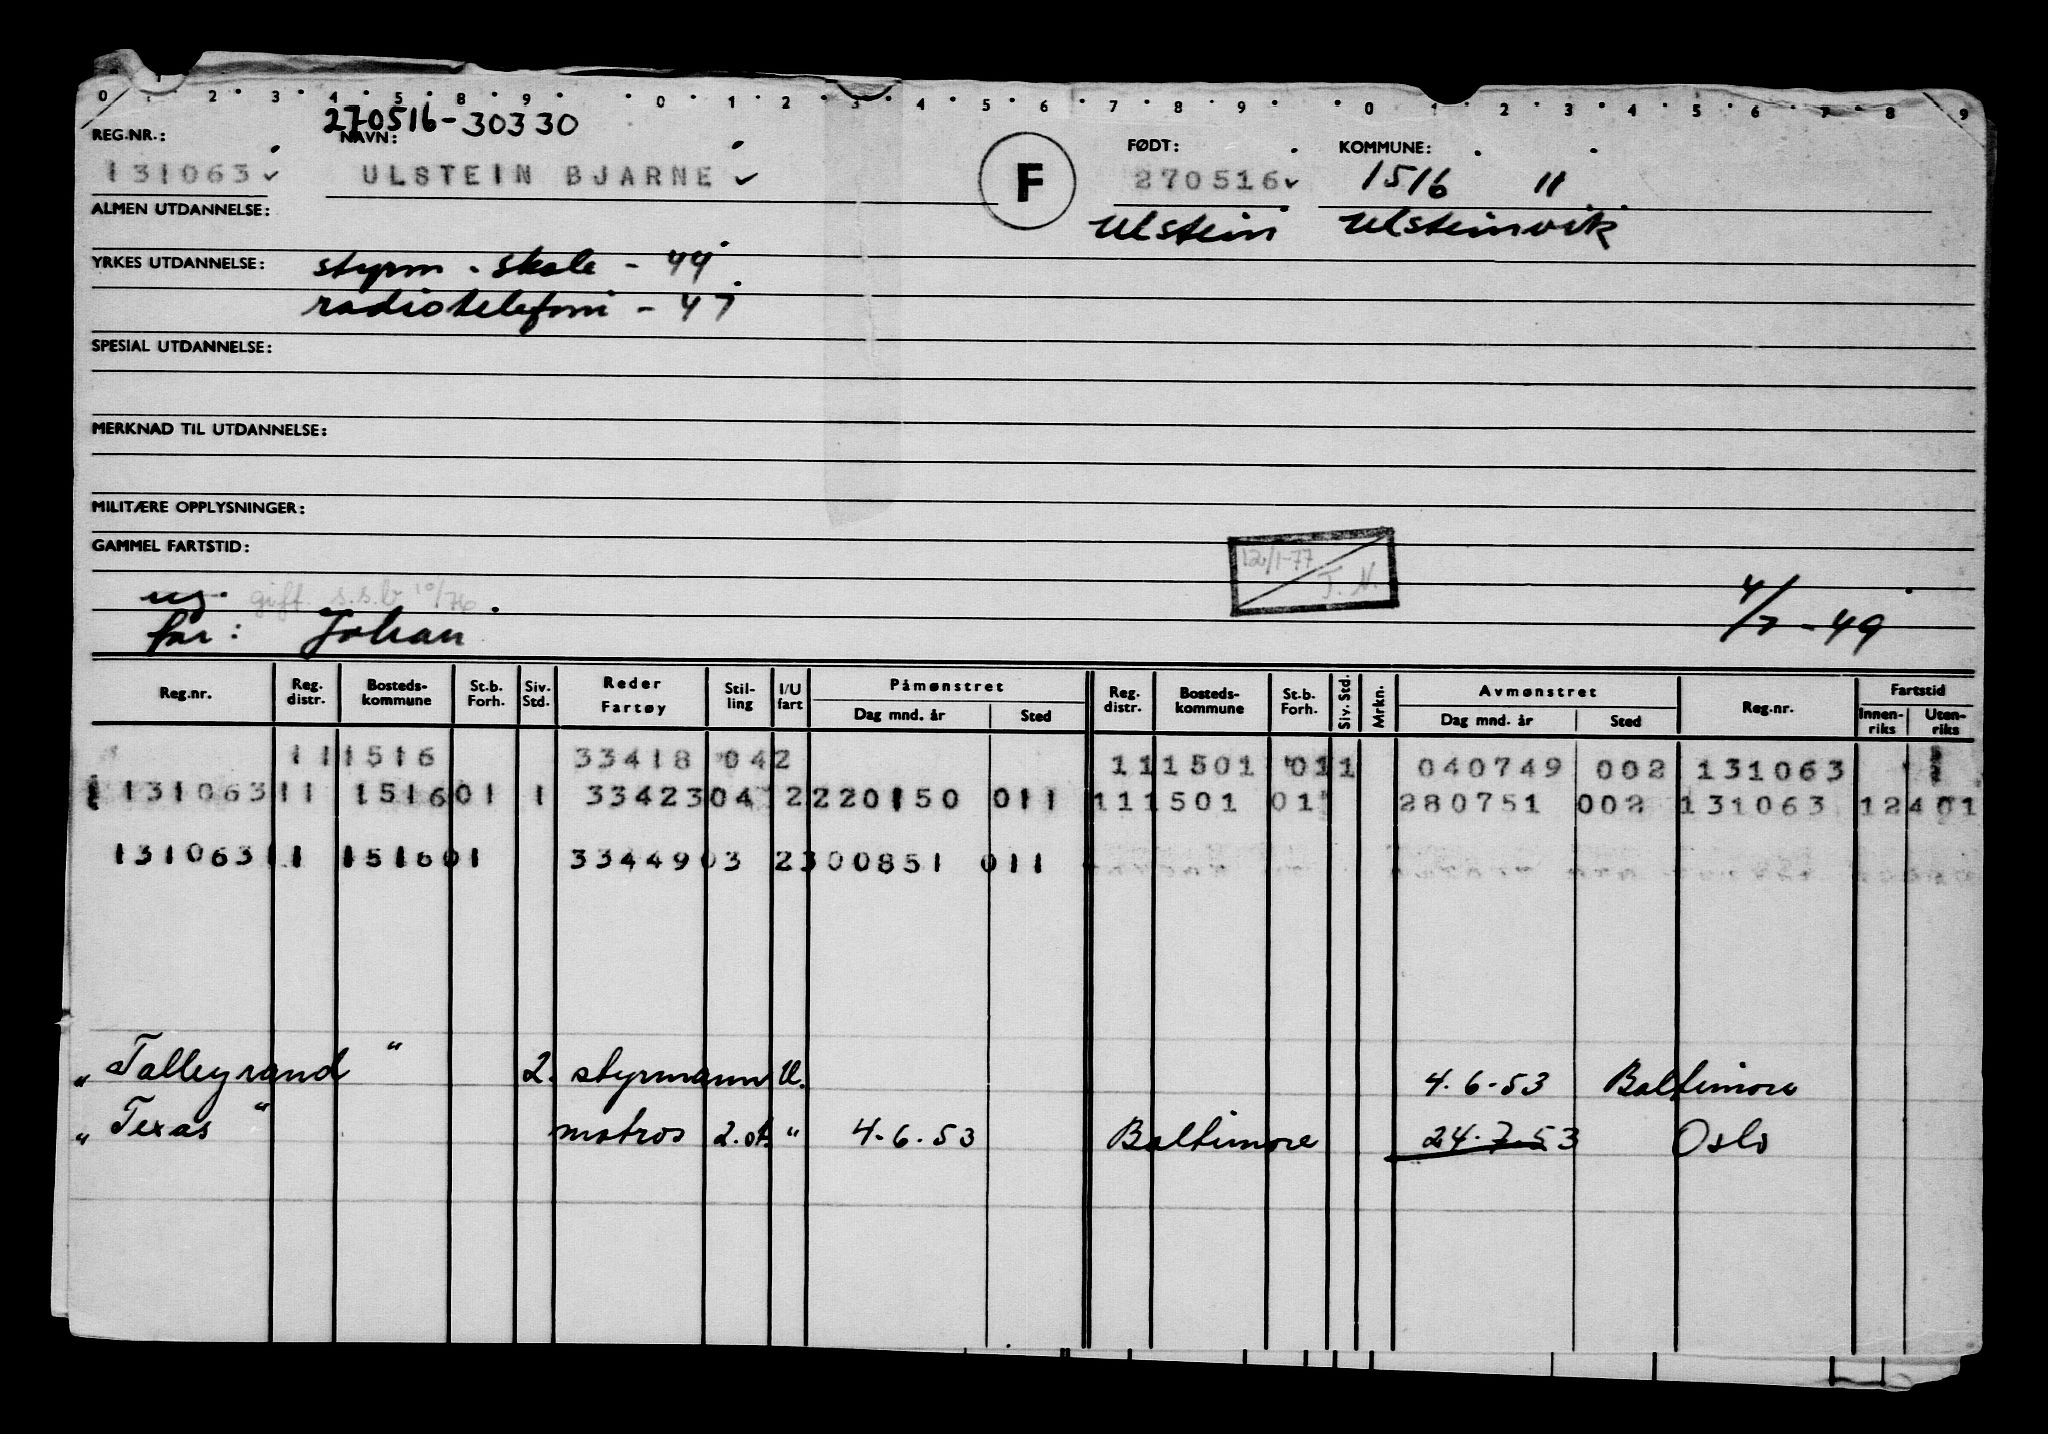 0 2 3 4 5 8 9 0 1 2 3 4 5 6 7 8 9 0 1 2 3 4 5 6 7 8 9
270516-30330
REG.NR.: NAVN: FØDT: KOMMUNE:
131063 ✓ ULSTEIN BJARNE ✓ F 270516 ✓ 1516 11
ALMEN UTDANNELSE: Ulstein Ulsteinvik
YRKES UTDANNELSE: styrm. skole - 44
radiotelefoni - 47
SPESIAL UTDANNELSE:
MERKNAD TIL UTDANNELSE:
MILITÆRE OPPLYSNINGER:
GAMMEL FARTSTID:
12/1-77 T.N.
ug. gift s.s.b 10/76
far: Johan 4/7-49
Reg.nr. Reg. distr. Bosteds-kommune St.b. Forh. Siv. Std. Reder Fartøy Stil-ling I/U fart Påmønstret Dag mnd. år Sted Reg. distr. Bosteds-kommune St.b. Forh. Siv. Std. Mrkn. Avmønstret Dag mnd. år Sted Reg.nr. Fartstid Innen-riks Uten-riks
11 1516 33418 042 11 1501 011 040749 002 131063
131063 11 1516 01 1 33423 04 2 220150 011 11 1501 01 280751 002 131063 12401
131063 11 1516 01 33449 03 2 300851 011
„Talleyrand" 2. styrmann U. 4.6.53 Baltimore
„Texas" matros 2.st. " 4.6.53 Baltimore 24.7.53 Oslo